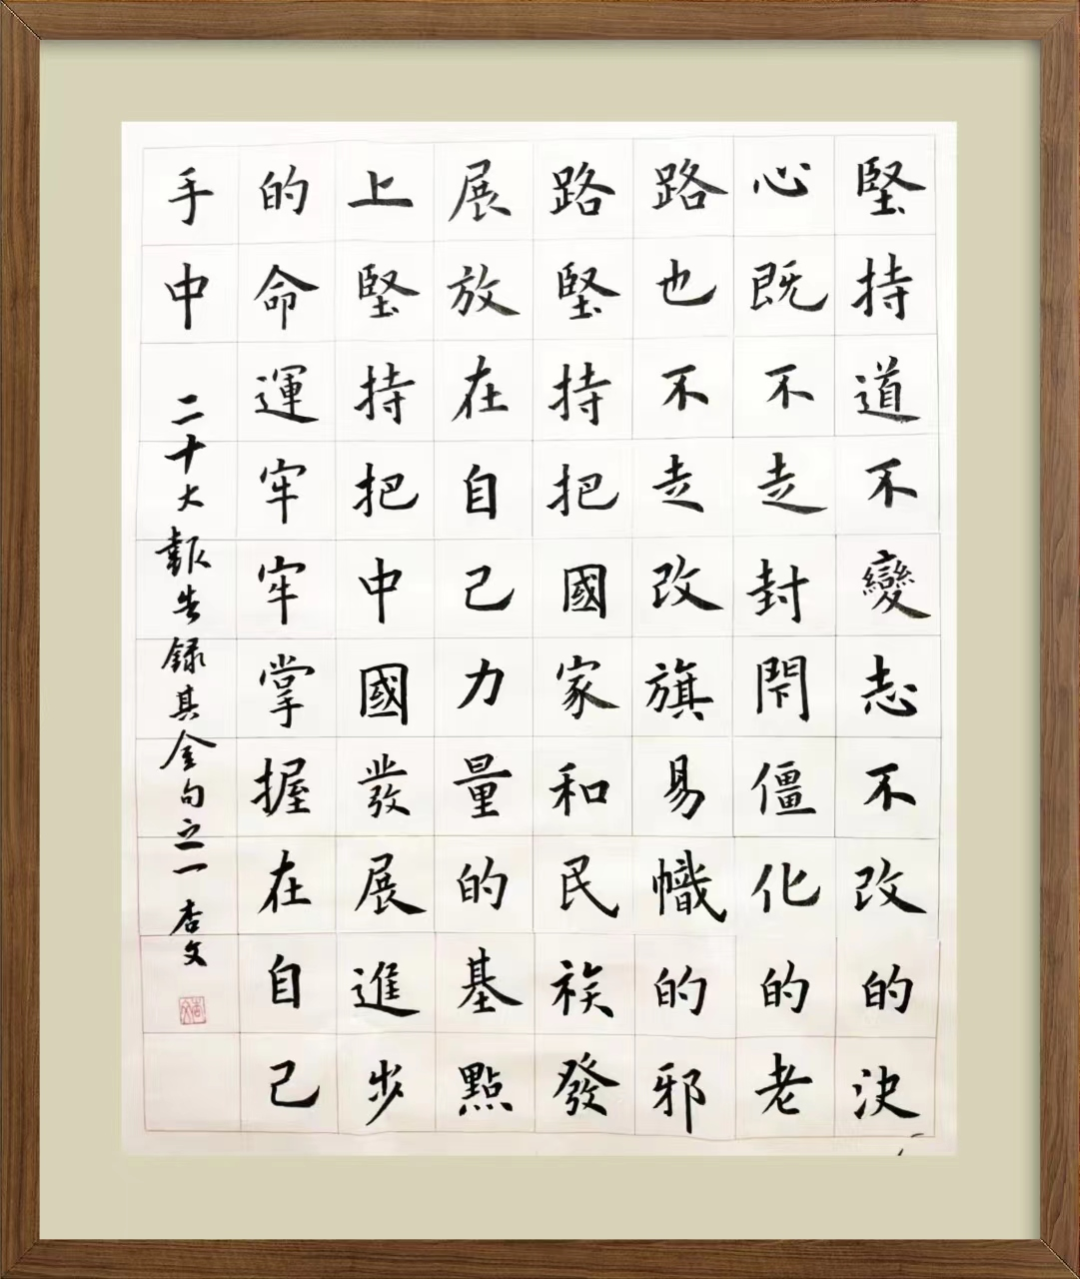 堅持道不變志不改的決
心既不走封閇僵化的老
路也不走改旗易幟的邪
路堅持把國家和民族發
展放在自己力量的基點
上堅持把中國發展進步
的命運牢牢掌握在自己
手中
二十大報告録其金句之一 杏文